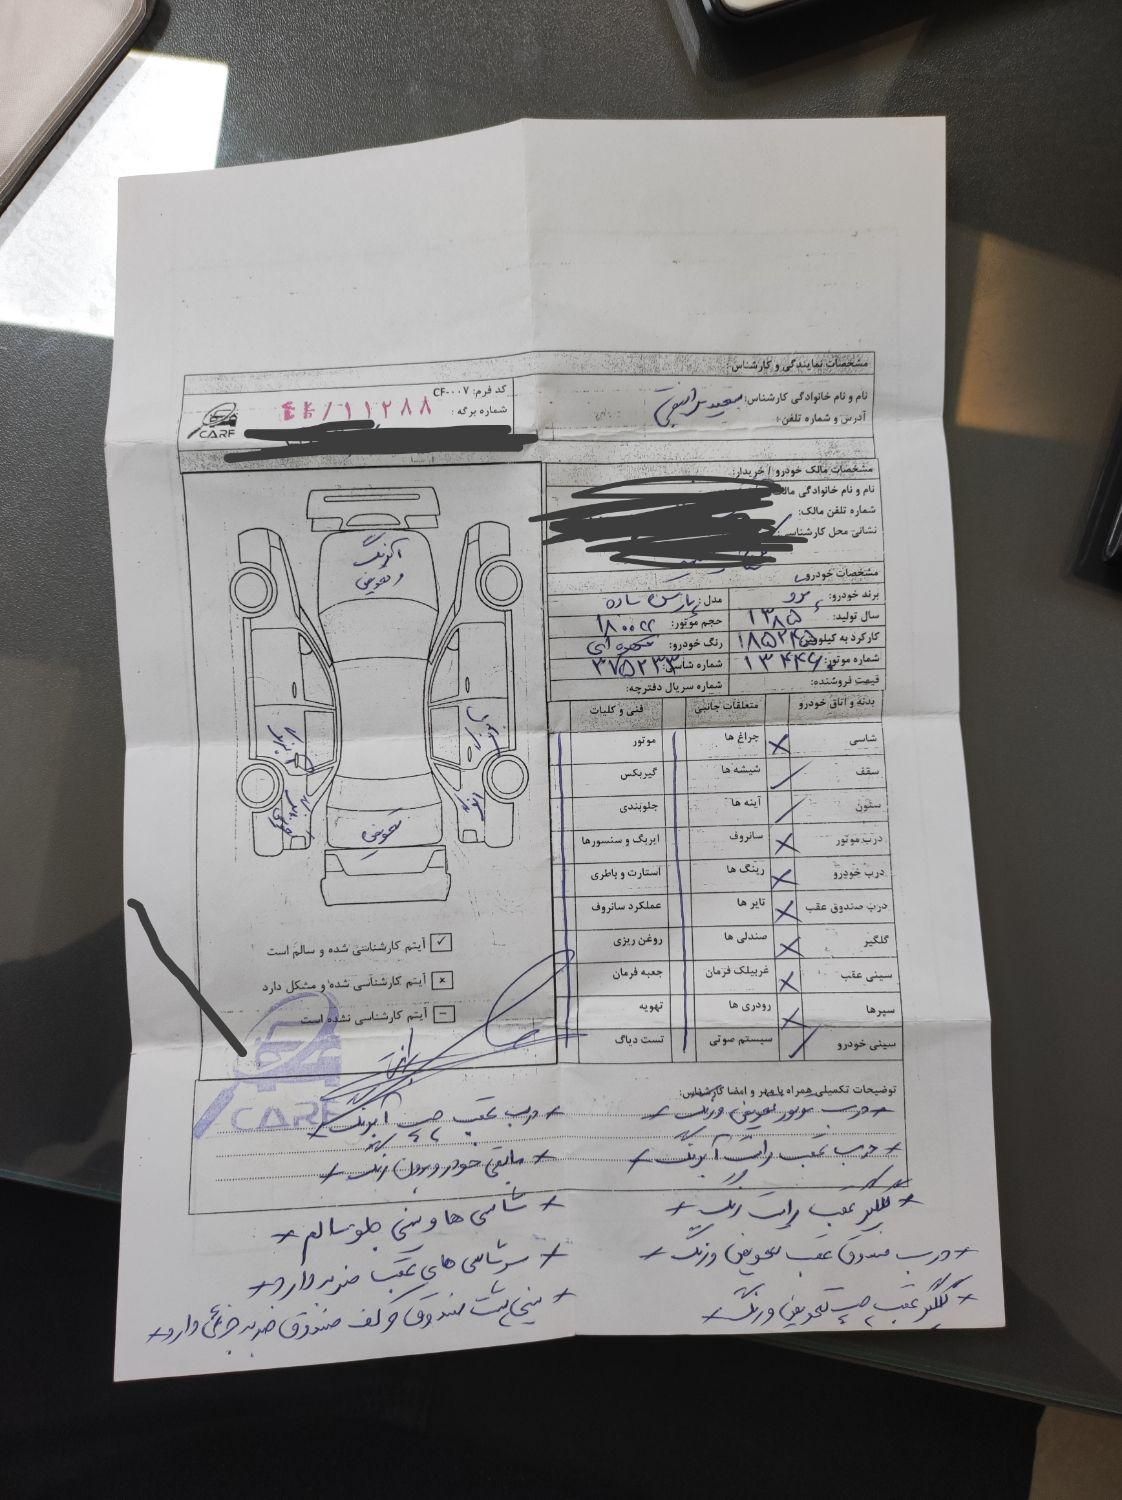 مشخصات نمایندگی و کارشناس:
نام و نام خانوادگی کارشناس: سعید
آدرس و شماره تلفن:
کد فرم: CF-۰۰۷
شماره برگه: ۴۴/۱۱۲۸۸
CARF
مشخصات مالک خودرو / خریدار:
نام و نام خانوادگی مالک
شماره تلفن مالک:
نشانی محل کارشناسی:
مشخصات خودرو
برند خودرو: پژو مدل: پارس ساده
سال تولید: ۱۳۸۵ حجم موتور: ۱۸۰۰cc
کارکرد به کیلومتر: ۱۸۵۲۴۵ رنگ خودرو: نقره ای
شماره موتور: ۱۳۴۴۶۰ شماره شاسی: ۳۷۵۲۳۳
قیمت فروشنده: شماره سریال دفترچه:
بدنه و اتاق خودرو متعلقات جانبی فنی و کلیات
شاسی × چراغ ها موتور
سقف ✓ شیشه ها گیربکس
ستون ✓ آینه ها جلوبندی
درب موتور × سانروف ایربگ و سنسورها
درب خودرو × رینگ ها استارت و باطری
درب صندوق عقب × تایر ها عملکرد سانروف
گلگیر × صندلی ها روغن ریزی
سینی عقب × غربیلک فرمان جعبه فرمان
سپرها × رودری ها تهویه
سینی خودرو ✓ سیستم صوتی تست دیاگ
آبرنگ
و تعویض
تعویض
✓ آیتم کارشناسی شده و سالم است
× آیتم کارشناسی شده و مشکل دارد
– آیتم کارشناسی نشده است
CARF
توضیحات تکمیلی همراه با مهر و امضا کارشناس:
× درب موتور تعویض و رنگ ×
× درب عقب راست آبرنگ ×
× گلگیر عقب راست رنگ ×
× درب صندوق عقب تعویض و رنگ ×
× گلگیر عقب چپ تعویض و رنگ ×
× درب عقب چپ آبرنگ ×
× مابقی خودرو بدون رنگ ×
× شاسی ها و سینی جلو سالم ×
× سرشاسی های عقب ضربه دارد ×
× سینی پشت صندوق و کف صندوق ضربه جزئی دارد ×